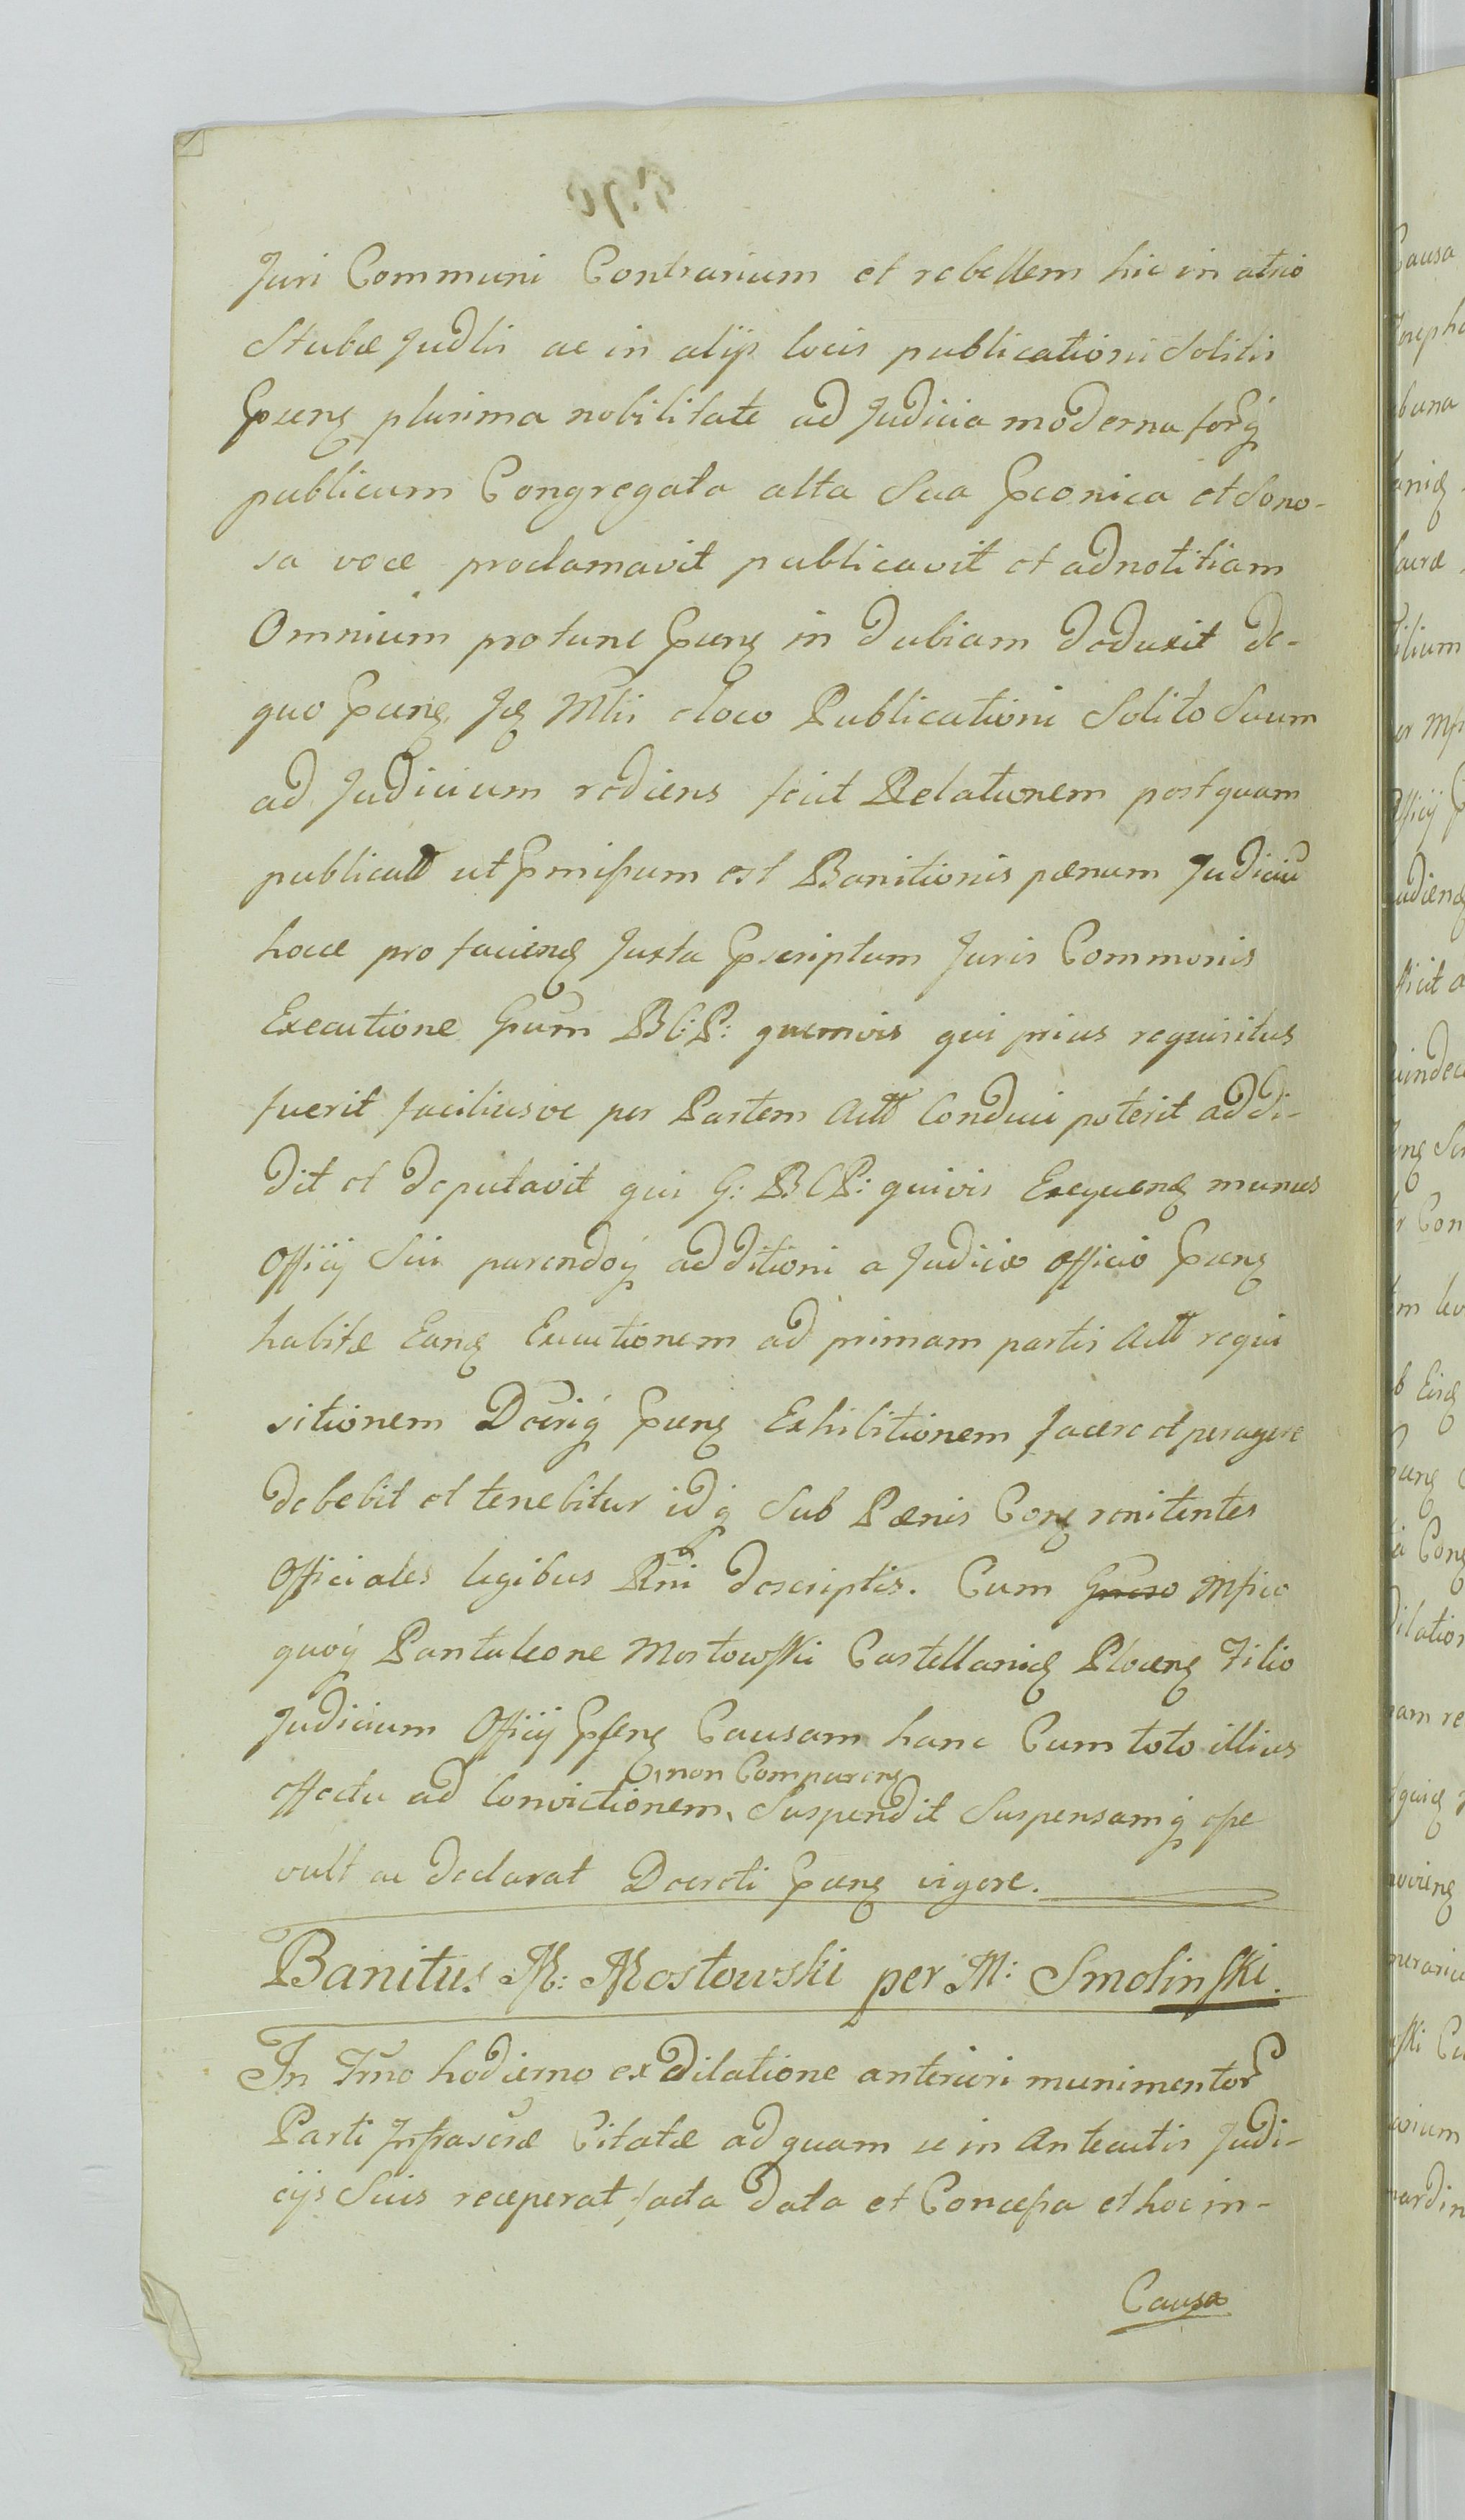 Juri Communi Contrarium et rebellem hic in atrio
Stubæ Judlis ac in alijs locis publicationi Solitis
Pñng plurima nobilitate ad Judicia moderna forq́
publicum Congregata alta Sua Pconica et Sono-
sa voce proclamavit publicavit et ad notitiam
Omnium pro tunc Pñng in dubiam deduxit de-
quo Pñng Jg Mtis e loco Publicationi Solito Suum
ad Judicium rediens fecit Relationem postquam
publicatt ut Pmissum est Banitionis pænam Judiciũ
hocce pro facieng Juxta Pscriptum Juris Commonis
Executione Gñum BCP: quemvis qui prius requisitus
fuerit faciliusve per Partem Actt Conduci poterit addi-
dit et deputavit qui G: BCP: quivis Exequeng munus
Officij Sui parendoq́ additioni a Judicio officio Pñng
habitæ Eang Executionem ad primam partis Actt requi
sitionem Dcĩriq́ Pñng Exhibitionem facere et peragere
debebit et tenebitur idq́ Sub Pænis Cong renitentes
Officiales legibus Rñi descriptis. Cum Gñroso Mfico
quoq́ Pantaleone Mostowski Castellanig Ploceng Filio
Judicium Officij Psñng Causam hanc Cum toto illius
non Compareng
effectu ad Convictionem Suspendit Suspensamq́ esse
vult ac declarat Decreti Pñng vigore.
Banitus M: Mostowski per M: Smolinski.
In Trño hodierno ex dilatione anteriori munimentor
Parti Infrascræ Citatæ ad quam se in Anteactis Judi-
cijs Suis receperat facta data et Concessa et hoc in-
Causa